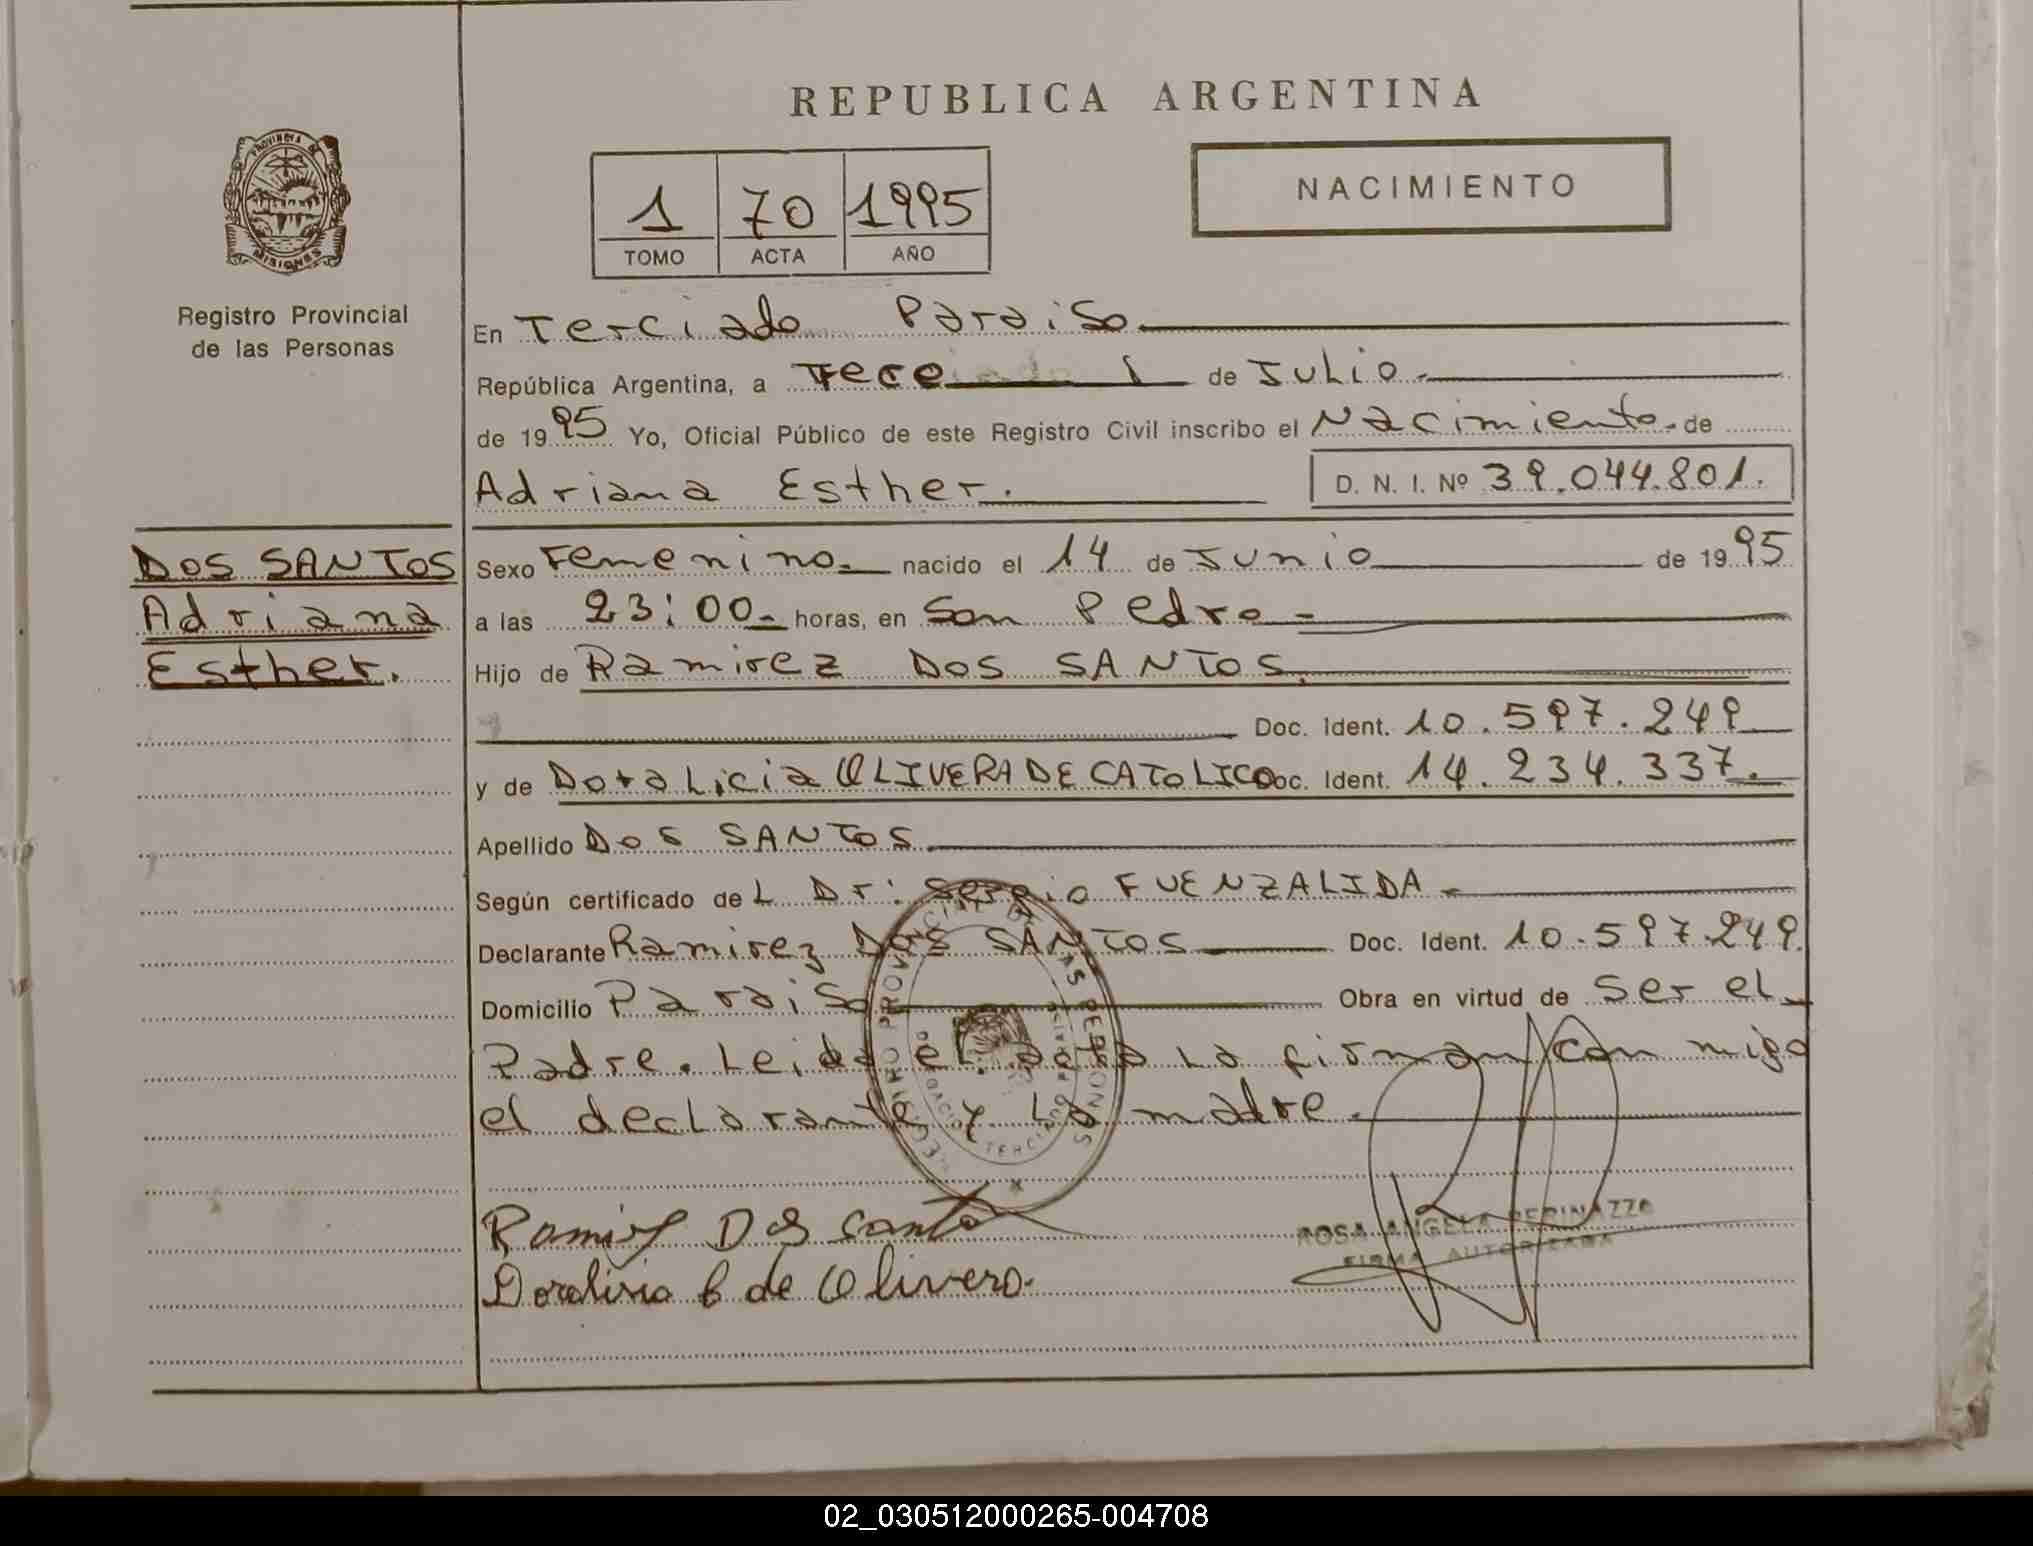 REPUBLICA ARGENTINA
PROVINCIA DE MISIONES
1 70 1995
TOMO ACTA AÑO
NACIMIENTO
Registro Provincial
de las Personas
En Terciado Paraiso
República Argentina, a Trece de Julio.
de 1995 Yo, Oficial Público de este Registro Civil inscribo el Nacimiento. de
Adriana Esther. D. N. I. Nº 39.044.801.
DOS SANTOS
Adriana
Esther.
Sexo Femenino. nacido el 14 de Junio de 1995
a las 23:00 horas, en San Pedro
Hijo de Ramirez DOS SANTOS.
Doc. Ident. 10.597.249
y de Doralicia OLIVERA DE CATOLICO Doc. Ident. 14.234.337.
Apellido DOS SANTOS.
Según certificado deL Dr: Sergio FUENZALIDA
Declarante Ramirez DOS SANTOS Doc. Ident. 10.597.249.
Domicilio Paraiso Obra en virtud de Ser el
Padre. Leida el acta La firman con migo
el declarante y La madre.
Ramirez Dos Santo
Doralisia C de Olivero.
ROSA ANGELA PERINAZZO
FIRMA AUTORIZADA
02_030512000265-004708